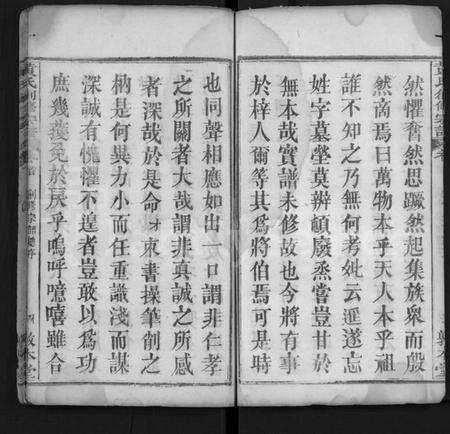 然懼瞿然思蹶然起集族衆而殷
然商焉曰萬物本乎天人本乎祖
誰不知之乃無何考妣云遥遂忘
姓字墓塋莫辨頓廢烝嘗豈甘於
不哉實譜未修故也今將有事
於梓人爾等其爲將伯焉可是時
也同聲相應如出一口謂非仁孝
之所關者大哉謂非真誠之所感
者深哉於是命才束書操筆削之
枘是何異力小而任重識淺而謀
深誠有慌懼不遑者豈敢以爲功
庶幾獲免於戾乎嗚呼噫嘻雖合
敦本堂